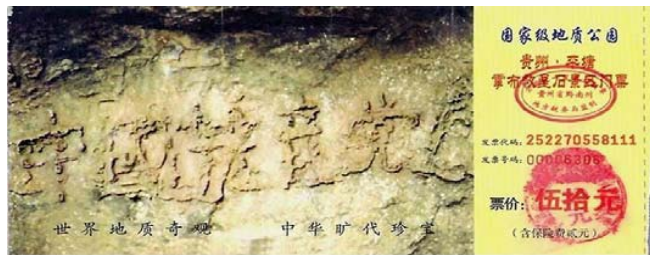 中国共产党
世界地质奇观 中华旷代珍宝
国家级地质公园
贵州·平塘
掌布救星石景区门票
贵州省黔南州
发票代码：252270558111
发票号码：00006306
票价：伍拾元
（含保险费贰元）